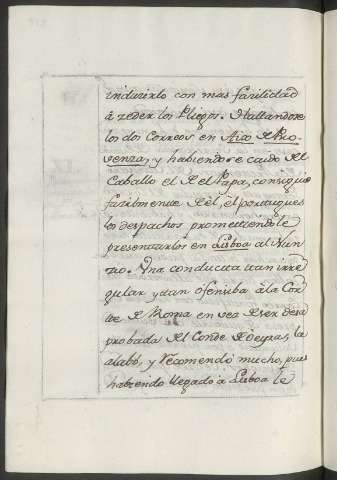 inducirlo con mas facilidad
à zeder los Pliegos. Hallandose
los dos Correos en Aix de Pro-
venza, y habiendose caido del
Caballo el de el Papa, consiguio
facilmente de èl, el portugues
los despachos prometiendole
presentarlos en Lisboa al Nun-
zio. Una conducta tan irre-
gular y tan ofensiba à la Cor-
te de Roma en vez de ser desa
probada del Conde de Oeyras, la
alabò, y recomendò mucho, pues
habiendo llegado à Lisboa le